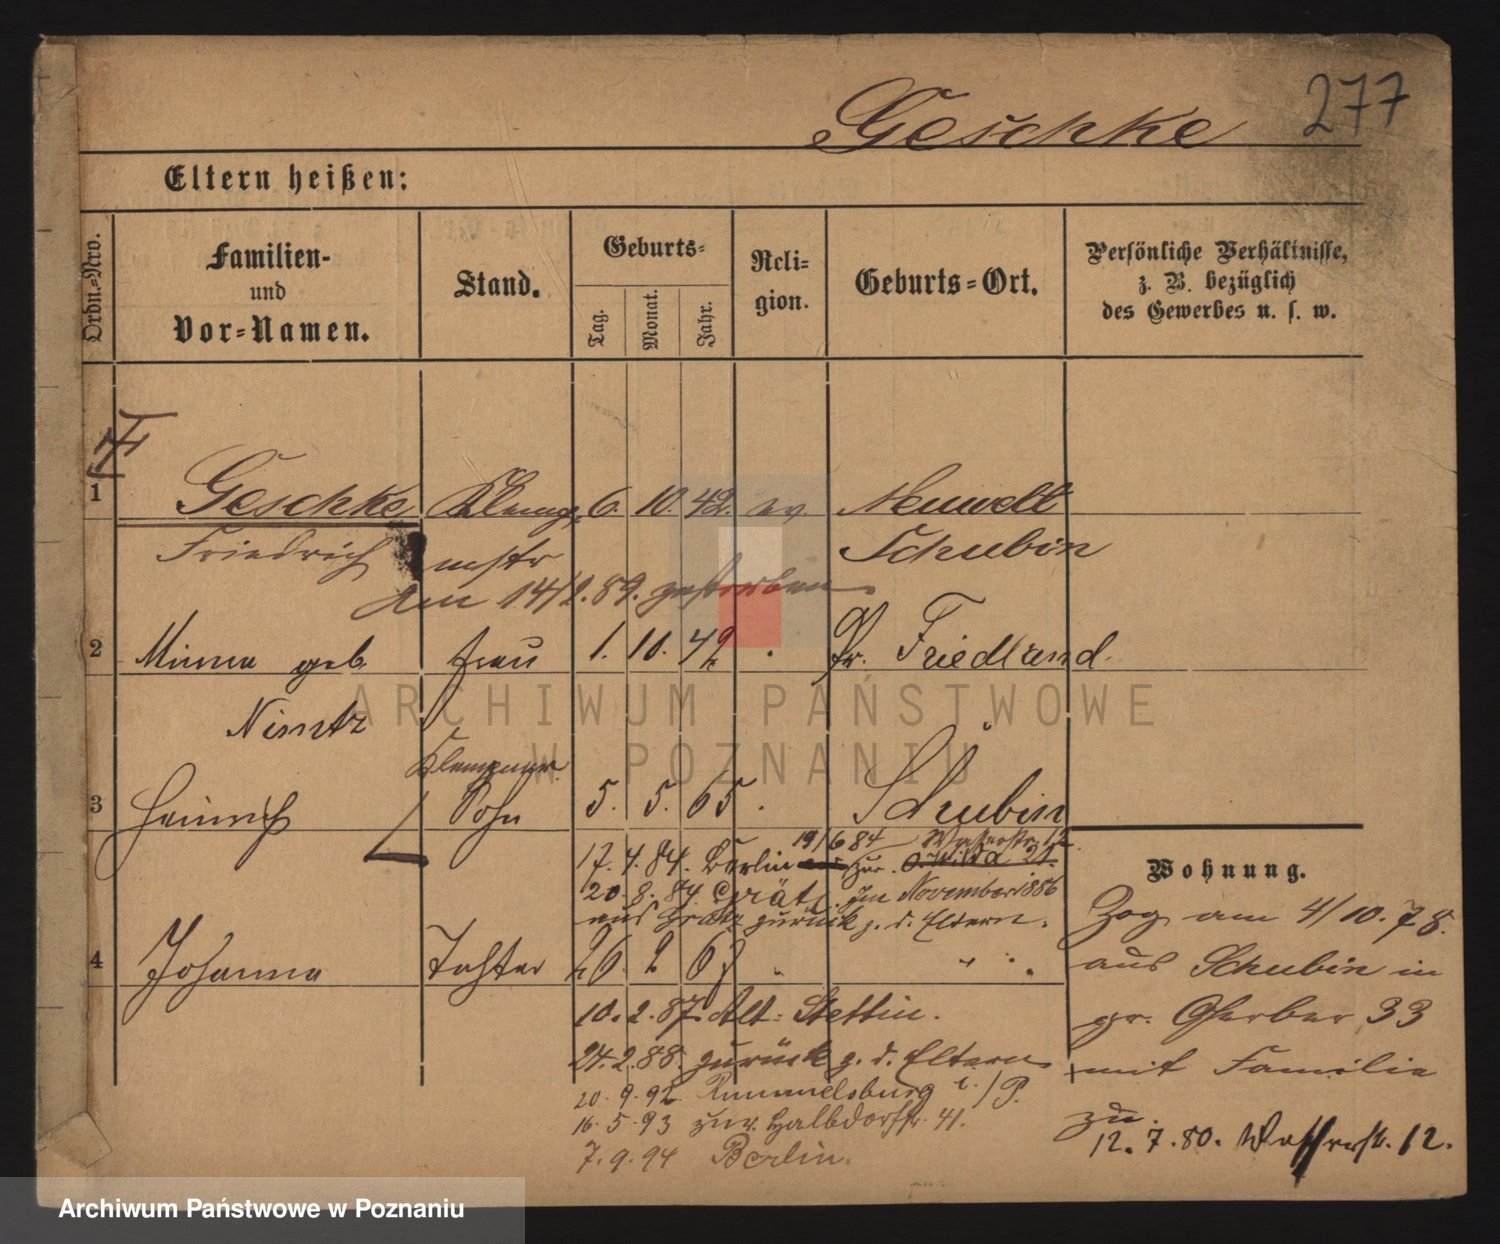 277
Geschke
Eltern heißen:
Ordn.-Nro.
Familien-
und
Vor-Namen.
Stand.
Geburts-
Tag.
Monat.
Jahr.
Reli-
gion.
Geburts-Ort.
Persönliche Verhältnisse,
z. B. bezüglich
des Gewerbes u. s. w.
1 Geschke Klemp- 6. 10. 42. ev. Neuwelt
Friedrich mstr Schubin
Am 14/2.89. gestorben
2 Minna geb. Frau 1. 11. 42 Friedland
Nimtz
Klempner
3 Heinrich Sohn 5. 5. 65. Schubin
19/6 84 Wasserstr. 12.
17. 4. 84. Berlin zur. O. Wilda 21.
20. 8. 84. Grätz. Im November 1886
aus Grätz zurück z. d. Eltern.
4 Johanna Tochter 26. 2 67
10. 2. 87. Alt-Stettin.
24. 2. 88. zurück z. d. Eltern
20. 9. 92 Rummelsburg i./P.
16. 5. 93 zur. Halbdorfstr. 41.
7. 9. 94 Berlin.
Wohnung.
Zog am 4/10.78.
aus Schubin in
gr. Gerber 33
mit Familie
zu.
12. 7. 80. Wasserstr. 12.
ARCHIWUM PAŃSTWOWE
W POZNANIU
Archiwum Państwowe w Poznaniu